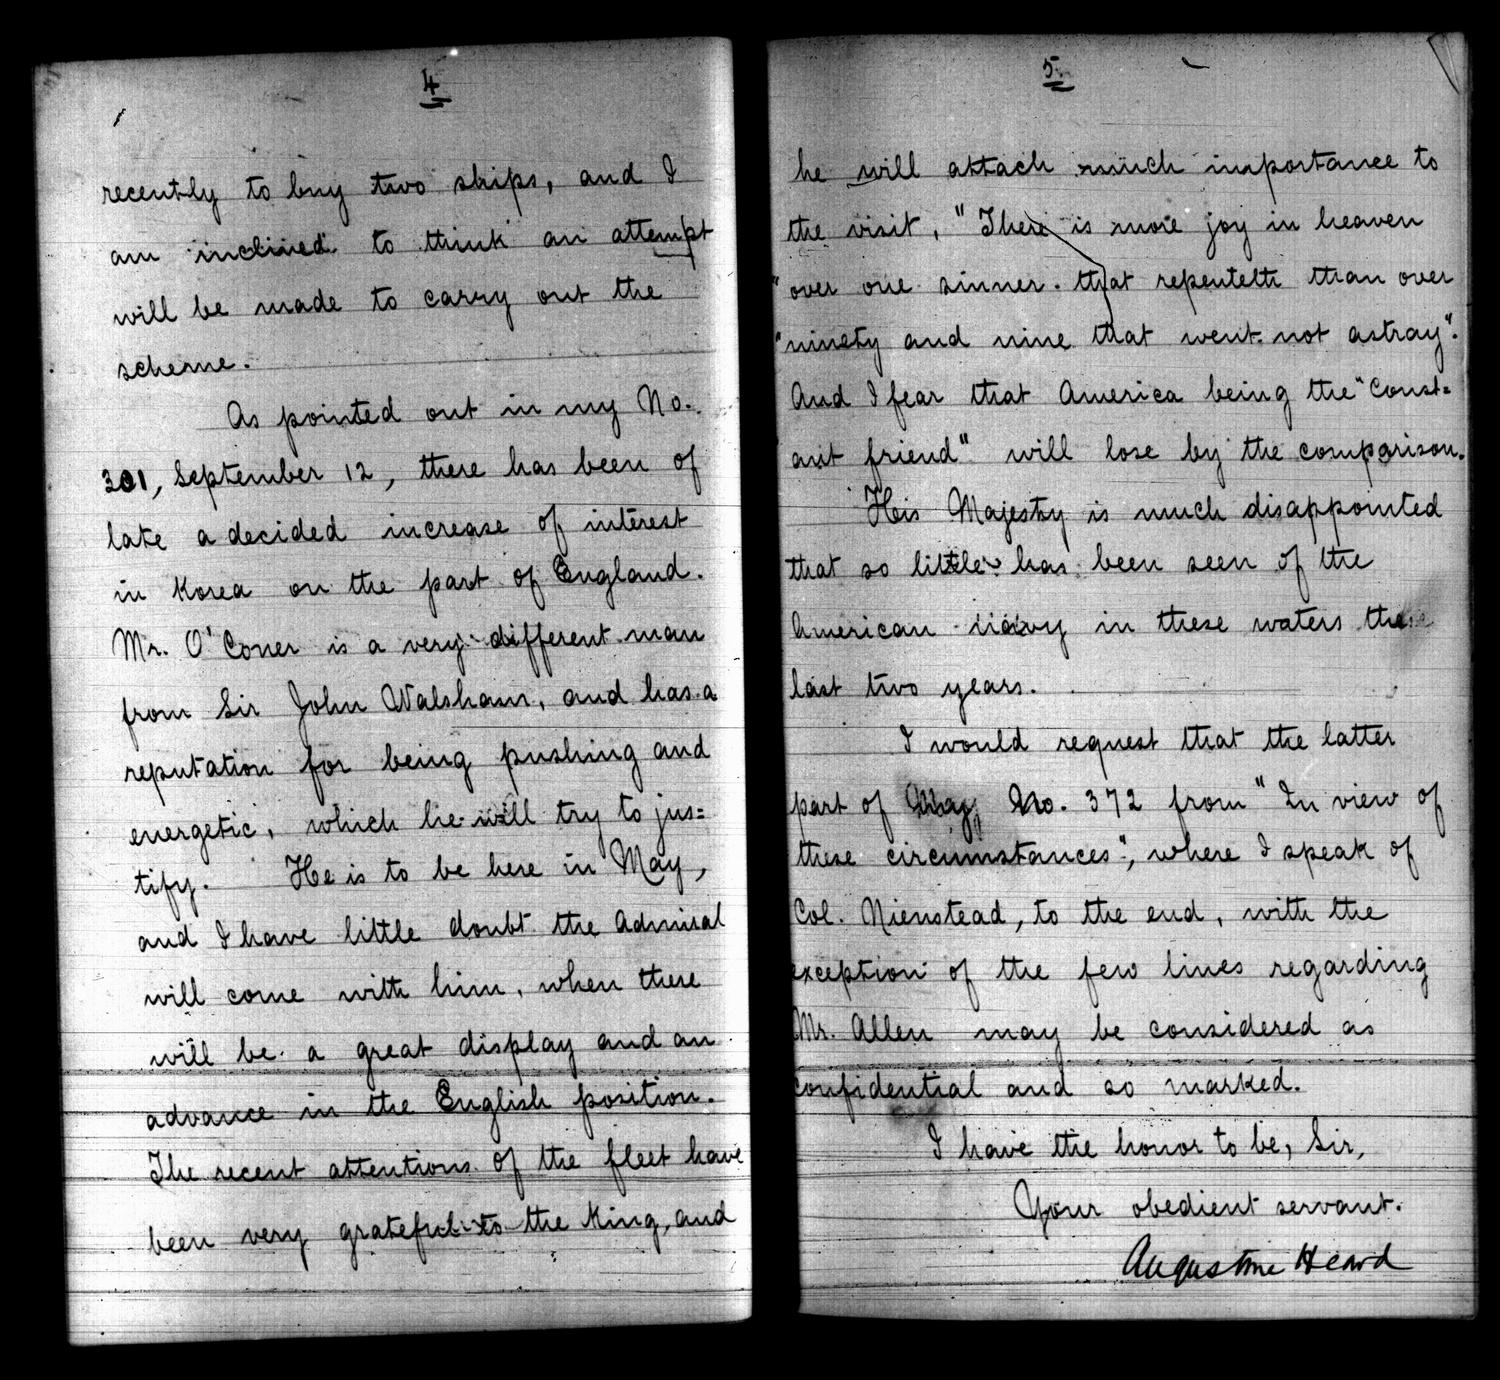 4
recently to buy two ships, and I
am inclined to think an attempt
will be made to carry out the
scheme.
As pointed out in my No.
301, September 12, there has been of
late a decided increase of interest
in Korea on the part of England.
Mr. O'Coner is a very different man
from Sir John Walsham, and has a
reputation for being pushing and
energetic, which he will try to jus=
tify. He is to be here in May,
and I have little doubt the Admiral
will come with him, when there
will be a great display and an
advance in the English position.
The recent attentions of the fleet have
been very grateful to the King, and
5.
he will attach much importance to
the visit, "There is more joy in heaven
"over one sinner that repenteth than over
"ninety and nine that went not astray".
And I fear that America being the "Const=
ant friend" will lose by the comparison.
His Majesty is much disappointed
that so little has been seen of the
American navy in these waters these
last two years.
I would request that the latter
part of my No. 372 from "In view of
these circumstances", where I speak of
Col. Nienstead, to the end, with the
exception of the few lines regarding
Mr. Allen may be considered as
confidential and so marked.
I have the honor to be, Sir,
Your obedient servant.
Augustine Heard